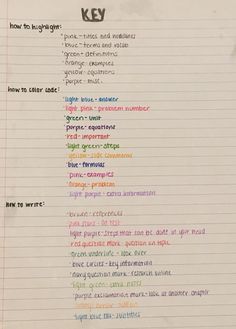 KEY
how to highlight:
pink - titles and headlines
blue - terms and vocab
green - definitions
orange - examples
yellow - equations
purple - misc.
how to color code:
light blue - answer
light pink - problem number
green - unit
purple - equations
red - important
light green - steps
yellow - side comments
blue - formulas
pink - examples
orange - problem
light purple - extra information
how to write:
brown - references
pink stars - on test
light purple - steps that can be done in your head
red question mark - question on topic
green underline - look over
blue circles - key information
navy question mark - research online
light green - extra notes
purple exclamation mark - look at another chapter
light blue - subtitles